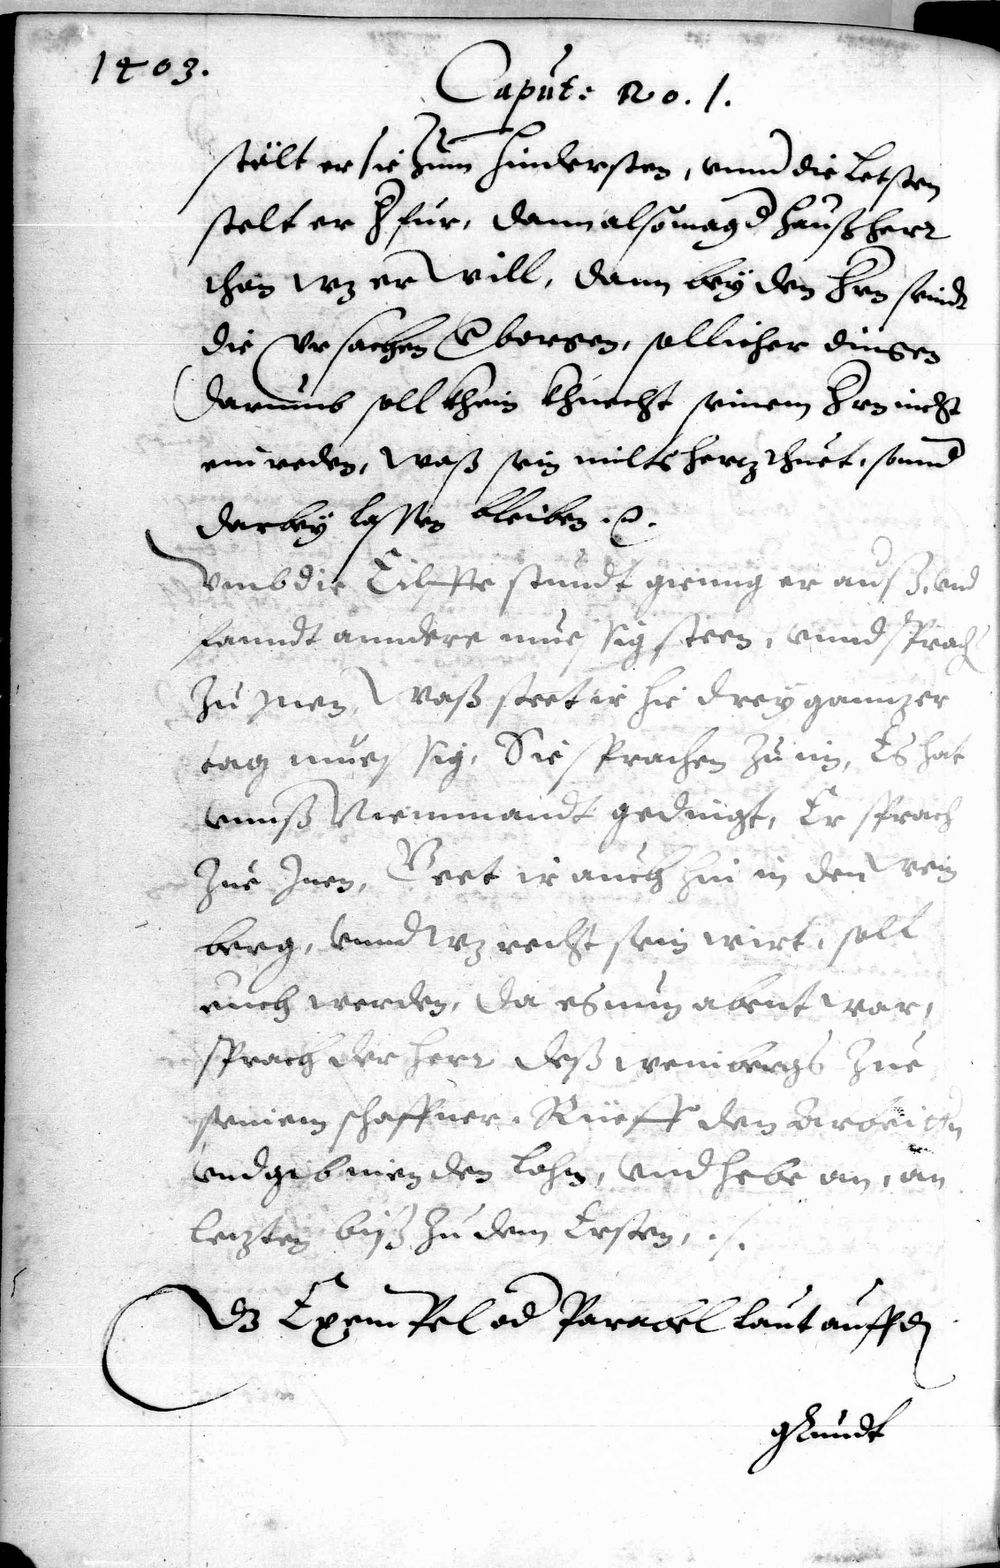 1403.
Caput: 20. 1.
stelt er sie Zum hindersten, vnnd die Letsten
stelt er hfür, dann also mag d haußherr
thon wz er will, dann bey den hrn seindt
die Vrsachen Vborgen, sollicher dingen
Darumb soll khein khnecht seinem hrn nicht
einreden, waß sein milts hertz thuet, sonnd
darbey lassen bleiben.
Vmb die Eilffte stundt gieng er auß, vnd
fanndt anndere muessig steen, vnnd sprach
Zu Jnen, Waß steet ir hie den ganntzen
tag muessig, Sie sprachen Zu im, Es hat
vnnß Niemmandt gedingt, Er sprach
Zue Jnen, Geet ir auch hin in den Wein
berg, vnnd wz recht sein wirt, soll
euch werden, Da es nun abent war,
sprach der herr deß weinbergs Zue
seinem schaffner, Rüeff den Arbeitern
vnd gib inen den lohn, vnd hebe an, an
letzten biß Zu dem Ersten, ./.
Dz Exempel od Parabel laut auff d
gsundt